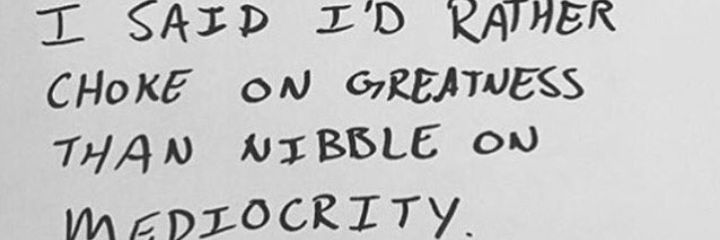 I SAID I'D RATHER
CHOKE ON GREATNESS
THAN NIBBLE ON
MEDIOCRITY.